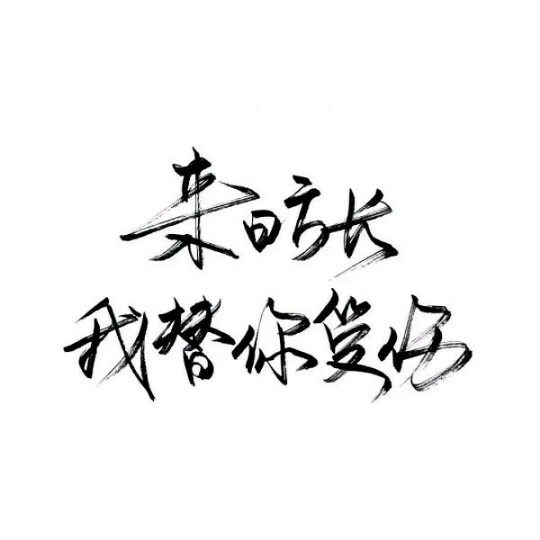 来日方长
我替你受伤